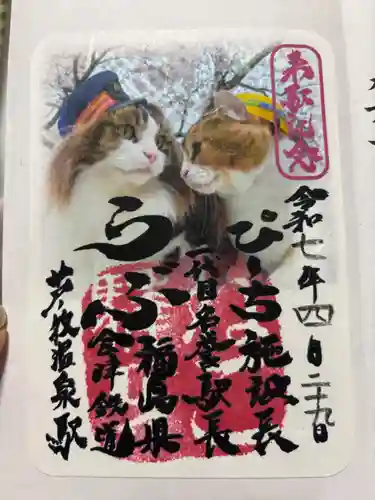 来駅記念
令和七年四月二十九日
ぴーち施設長
二代目名誉駅長
らぶ
福島県
会津鉄道
芦ノ牧温泉駅